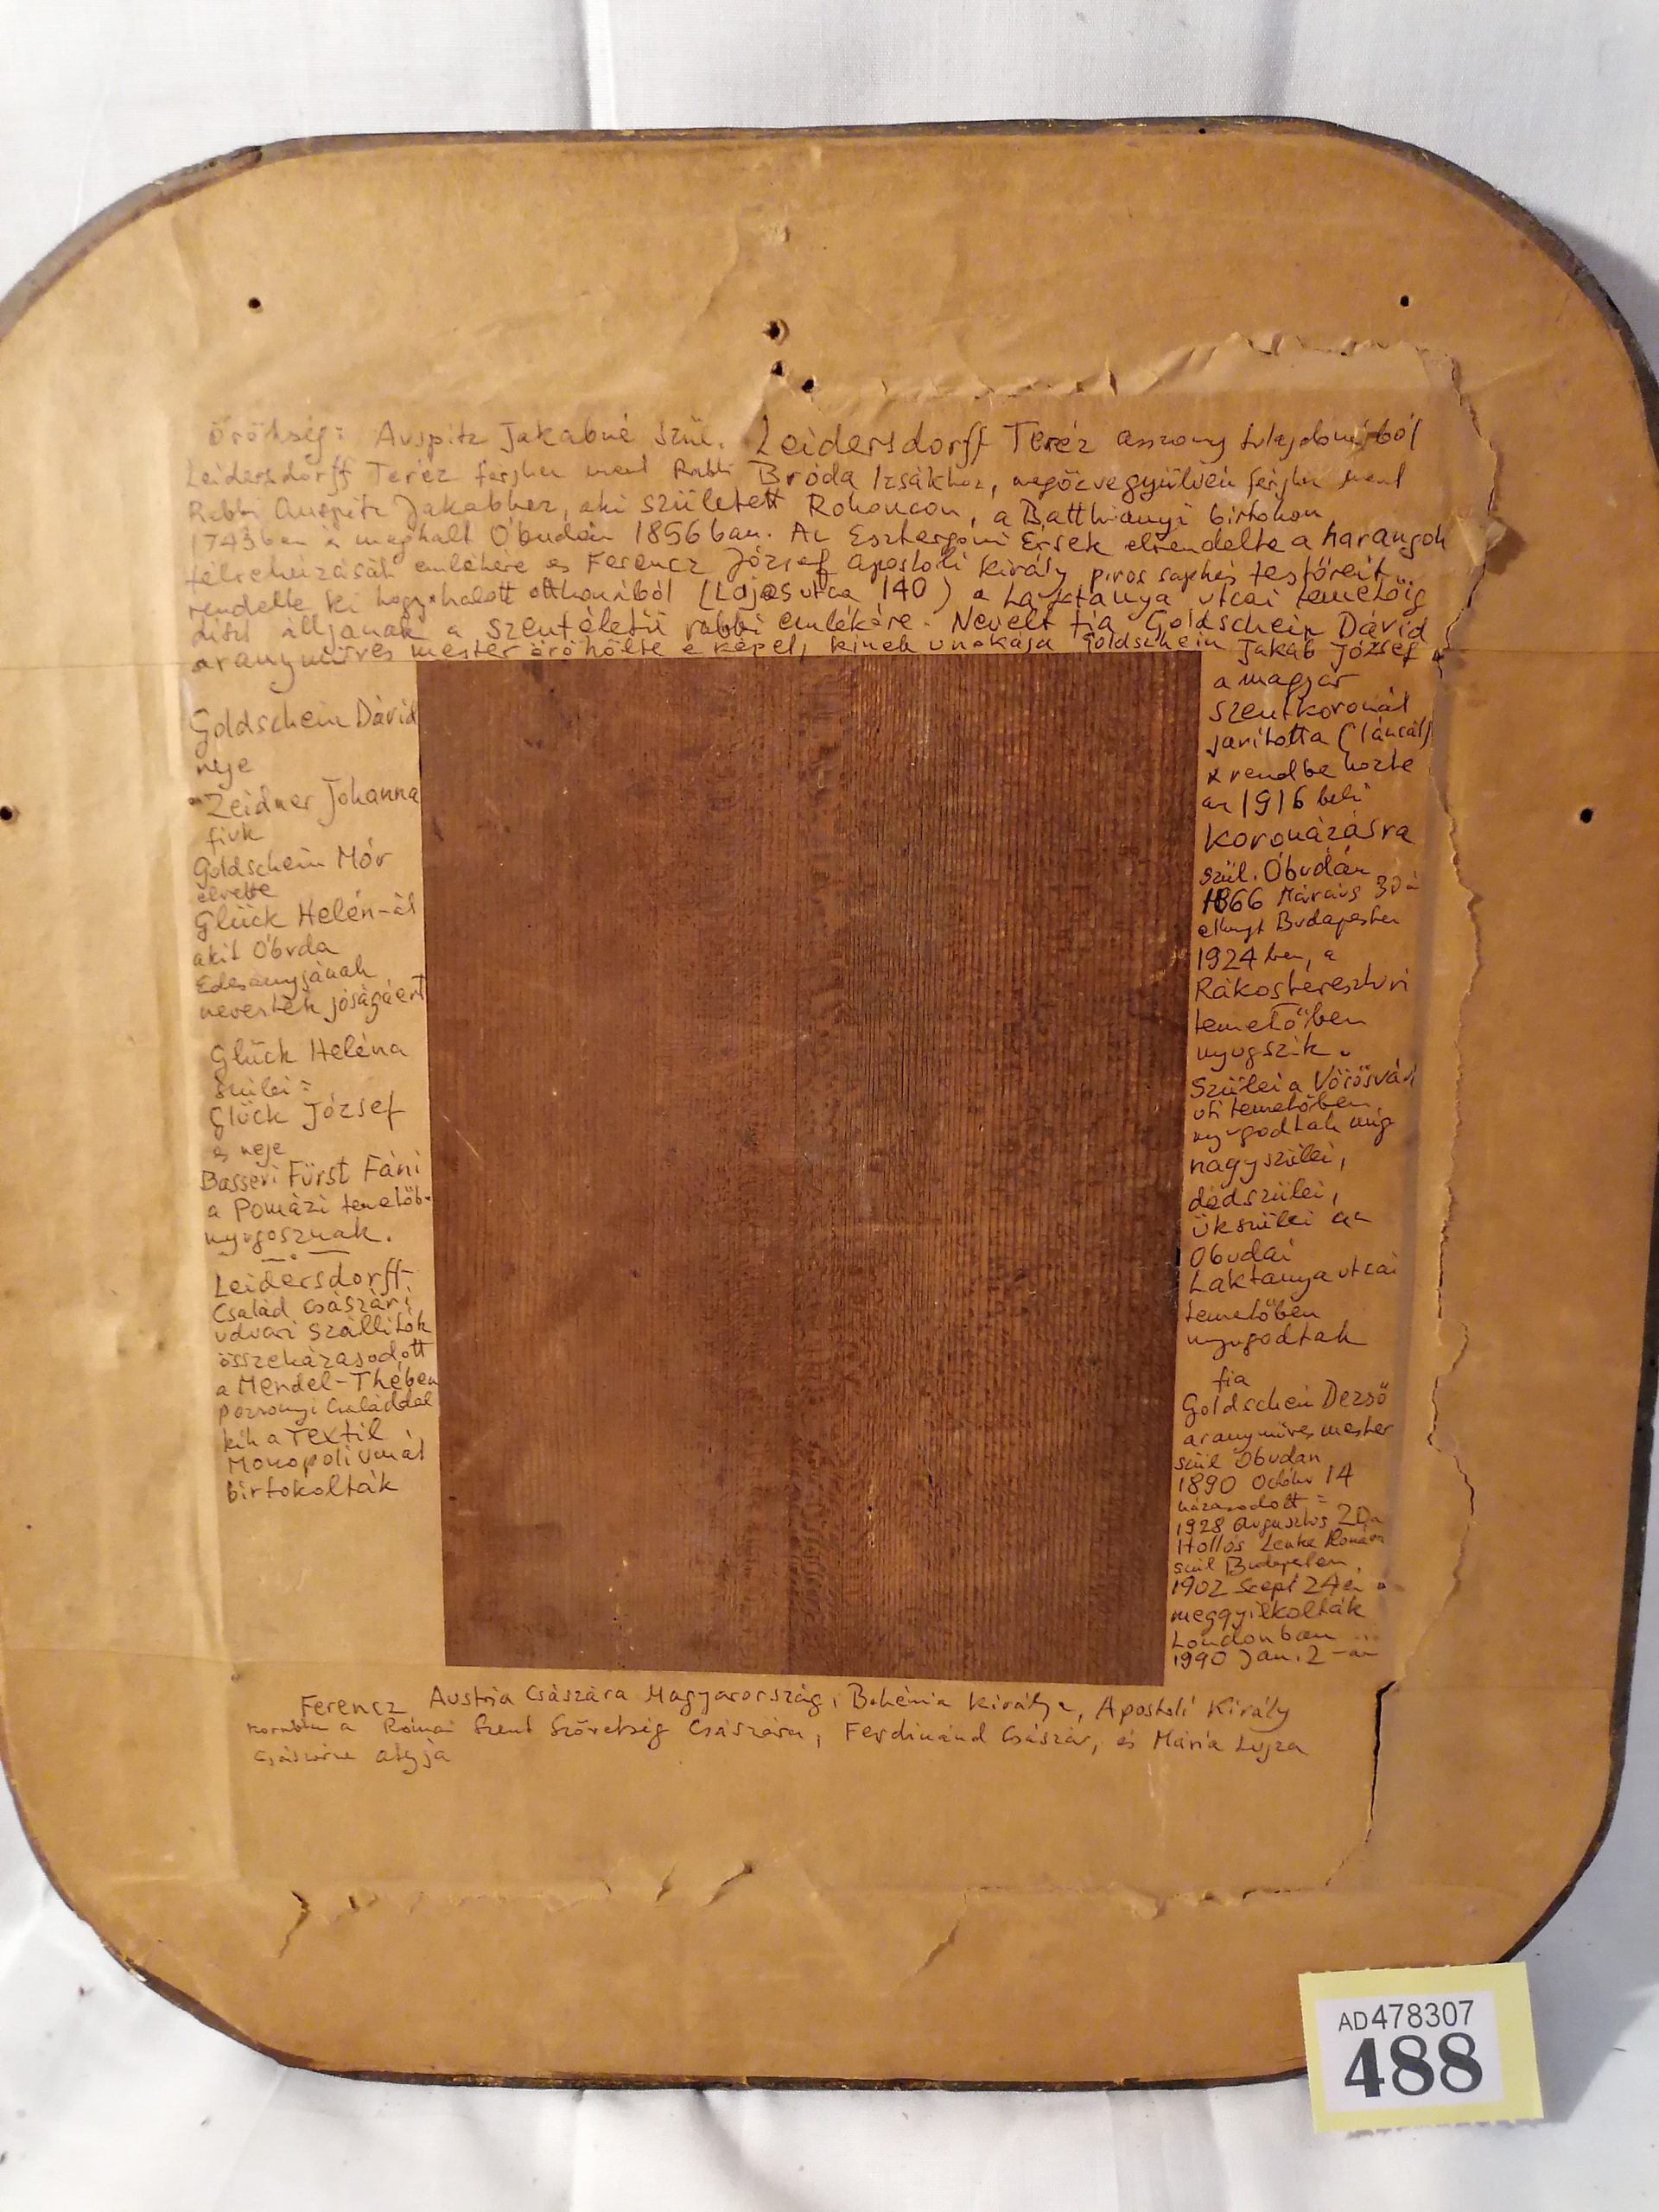 Örökség: Auspitz Jakabné Szül. Leidersdorff Teréz asszony tulajdonából
Leidersdorff Teréz férjhez ment Rabbi Bróda Izsákhoz, megözvegyülvén férjhez ment
Rabbi Auspitz Jakabhez, aki született Rohoncon, a Batthiányi birtokon
1743ban s meghalt Óbudán 1856ban. Az Esztergomi Érsek elrendelte a harangok
emlékére és Ferencz József apostoli király piros testőreit
rendelte ki hogy halott otthonából (Lajos utca 140) a Laktanya utcai temetőig
díszt álljanak a szentéletű rabbi emlékére. Nevelt fia Goldschein Dávid
aranyműves mester örökölte e képet, kinek unokája Goldschein Jakab József
Goldschein Dávid
neje
Zeidner Johanna
fiuk
Goldschein Mór
elvette
Glück Helén-át
akit Óbuda
Édesanyjának
neveztek jóságáért
Glück Heléna
Szülei=
Glück József
és neje
Basseri Fürst Fáni
a Pomázi temetőb.
nyugosznak.
Leidersdorff
Család császári
udvari szállítók
összeházasodott
a Mendel-Thében
pozsonyi Családdal
kik a Textil
Monopoliumát
birtokolták
a magyar
szentkoronát
javította (láncát)
s rendbe hozta
az 1916 beli
koronázásra
szül. Óbudán
1866 Március 30á
elhunyt Budapesten
1924 ben, a
Rákoskeresztúri
temetőben
nyugszik.
Szülei a Vörösvári
úti temetőben
nyugodtak míg
nagyszülei,
dédszülei,
ükszülei az
Óbudai
Laktanya utcai
temetőben
nyugodtak
fia
Goldschein Dezső
aranyműves mester
szül Óbudán
1890 Október 14
házasodott =
1928 Augusztus 20a
Hollós Lenke
szül Budapesten
1902 Szept 24én
meggyilkolták
Londonban ...
1990 Jan. 2-án
Ferencz Austria Császára Magyarország, Bohémia Királya, Apostoli Király
korábban a Római Szent Szövetség Császára, Ferdinánd Császár, és Mária Lujza
Császárné atyja
AD478307
488